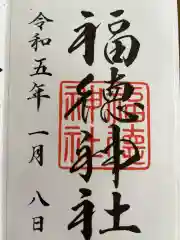 福徳神社
福徳神社
令和五年一月八日